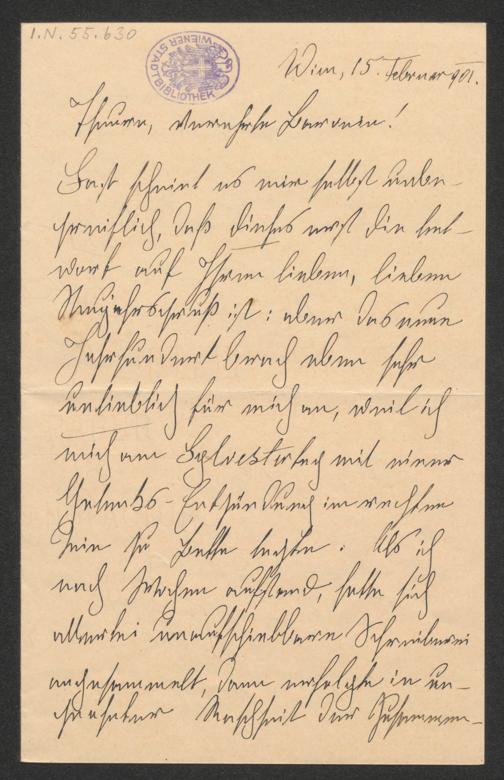 I.N. 55.630
WIENER STADTBIBLIOTHEK
Wien, 15. Februar 901.
Theure, verehrte Baronin!
Fast scheint es mir selbst unbe-
greiflich, daß dieses erst die Ant-
wort auf Ihren lieben, lieben
Neujahrsgruß ist: aber das neue
Jahrhundert brach eben sehr
unlieblich für mich an, weil ich
mich am Sylvestertag mit einer
Gelenks-Entzündung im rechten
Knie zu Bette legte. Als ich
nach Wochen aufstand, hatte sich
allerlei unaufschiebbare Schreiberei
angesammelt, dann erfolgte in un-
geahnter Raschheit der Zusammen-